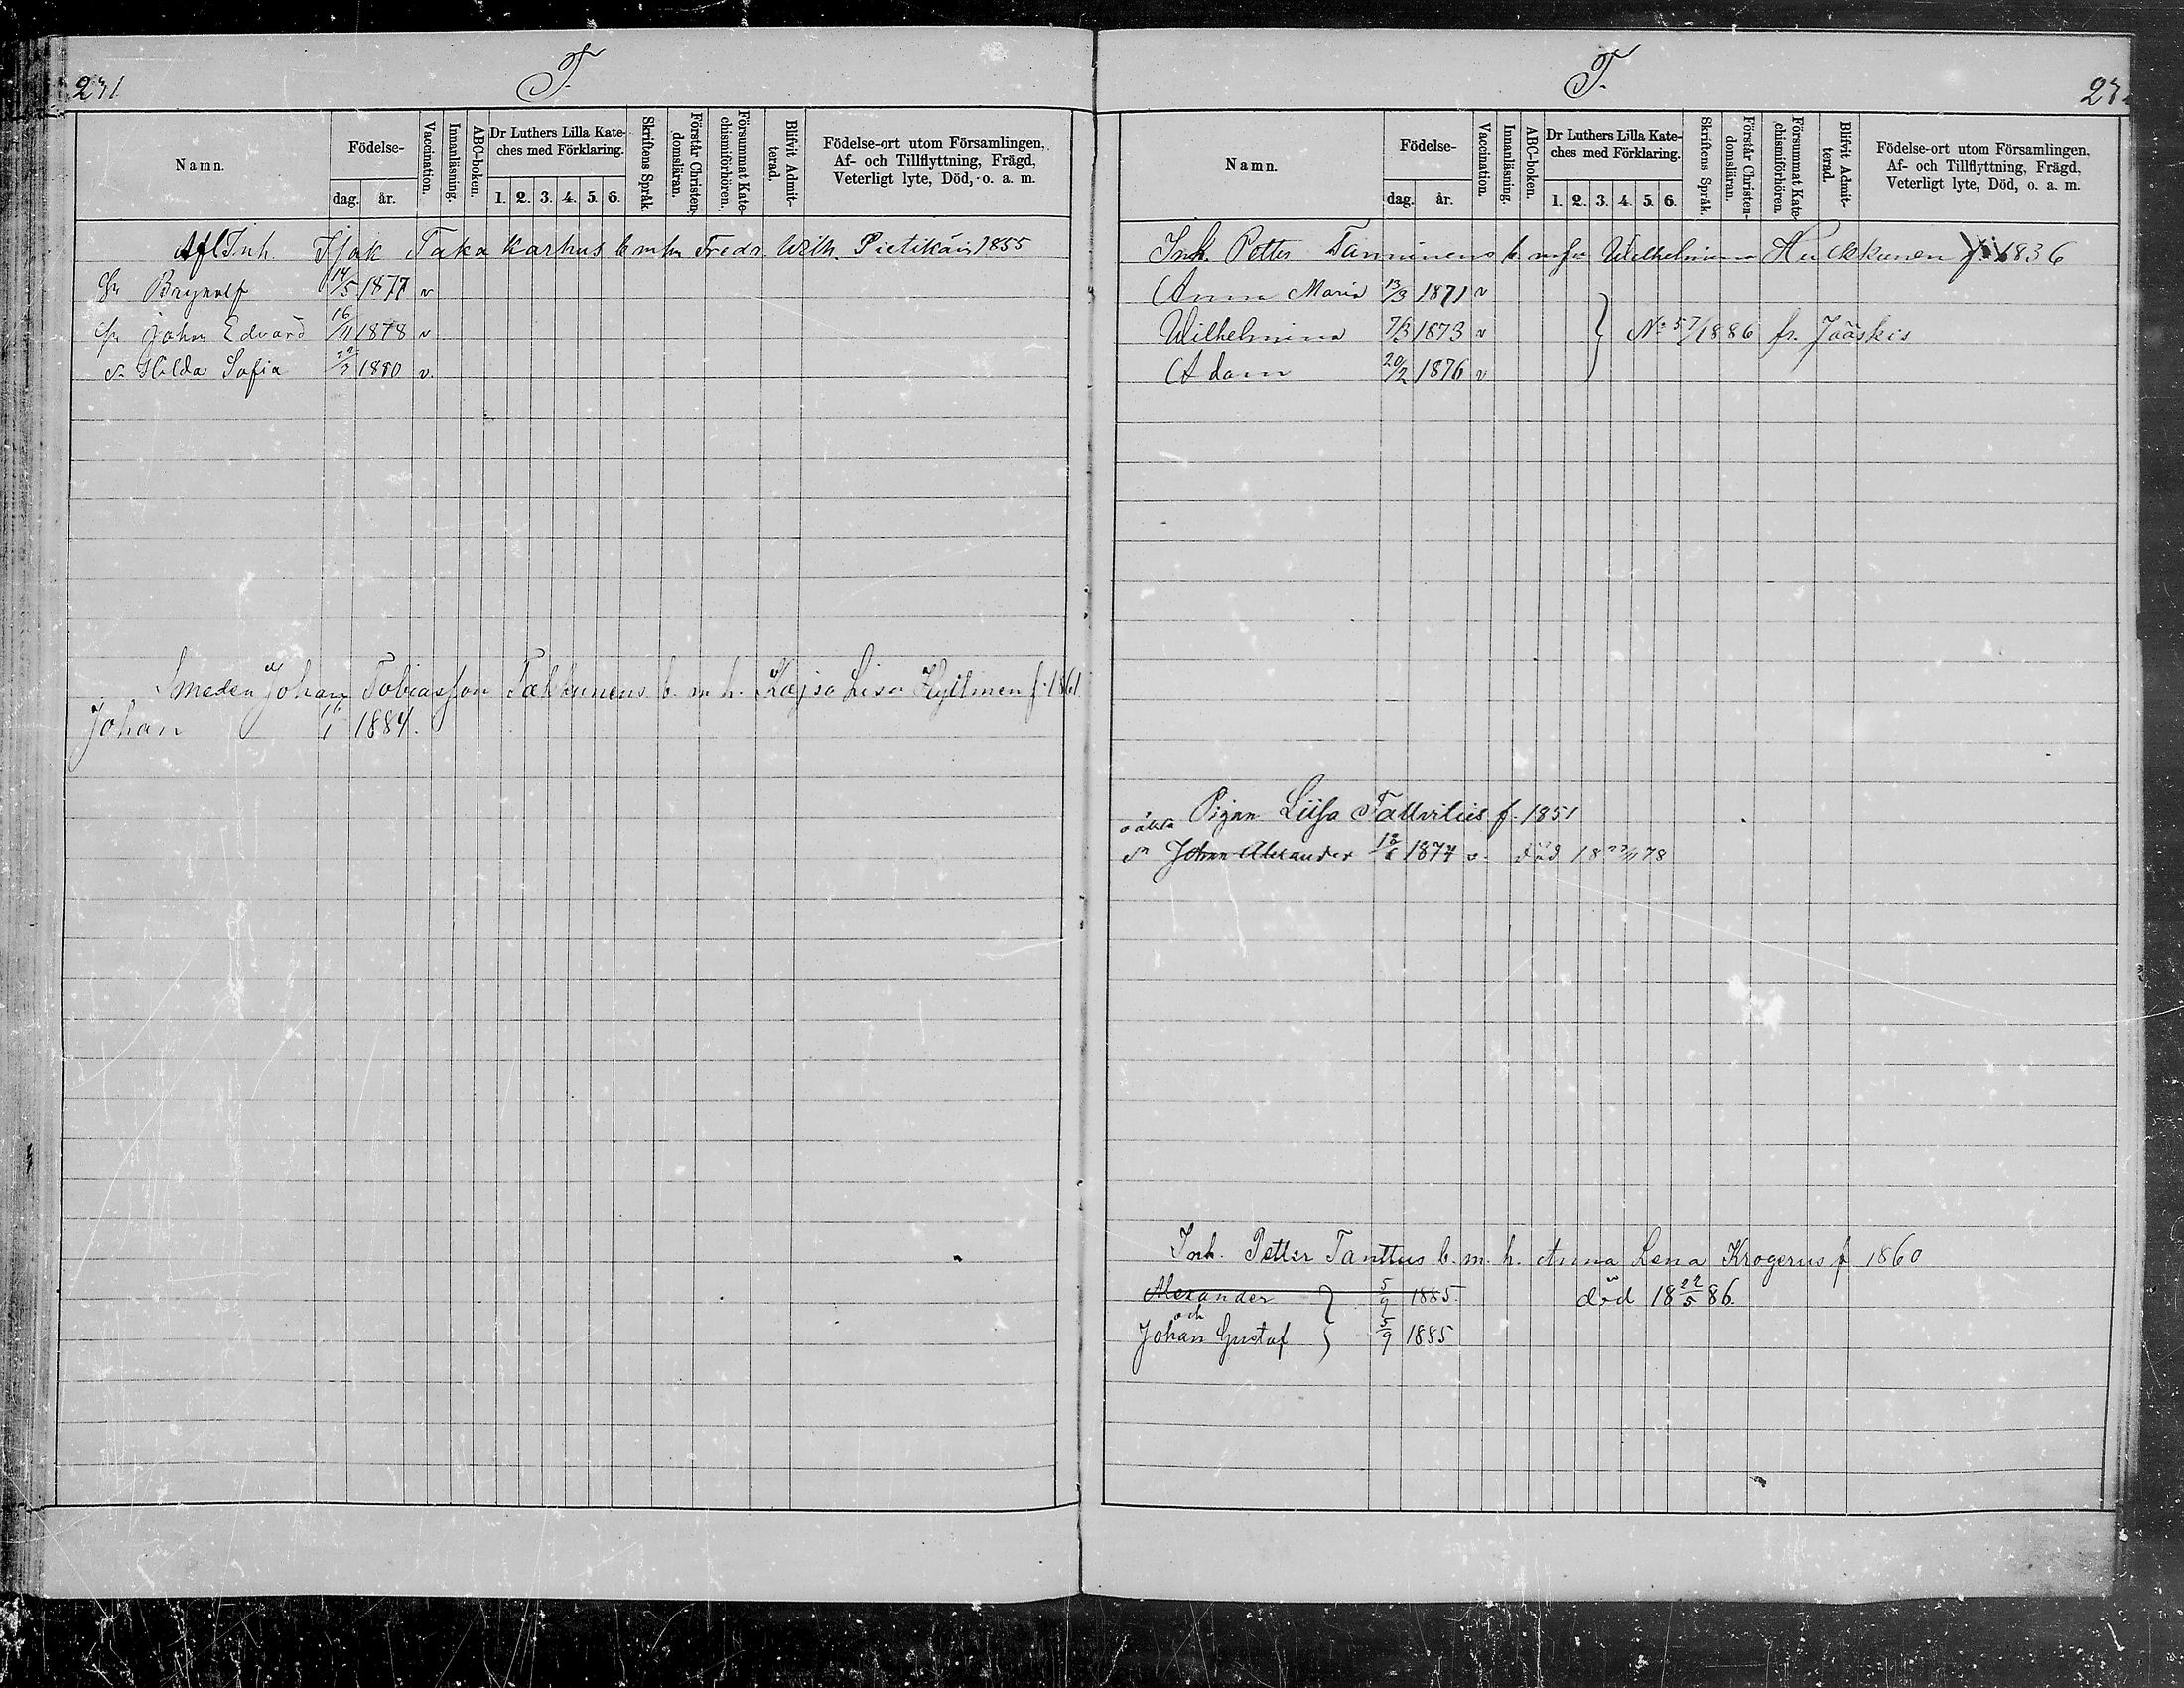 271
T.
Namn.
Födelse-
dag. år.
Vaccination.
Innanläsning.
ABC-boken.
Dr Luthers Lilla Kate-
ches med Förklaring.
1. 2. 3. 4. 5. 6.
Skriftens Språk.
Förstår Christen-
domsläran.
Försummat Kate-
chismiförhören.
Blifvit Admit-
terad.
Födelse-ort utom Församlingen,
Af- och Tillflyttning, Frägd,
Veterligt lyte, Död, o. a. m.
Afl Inh. Isak Taka Karhus b m hu Fredr. Wilh. Pietikäin 1855
Brynolf 14/5 1877 v
Johan Edvard 16/11 1878 v
Hilda Sofia 1880 v.
Smeden Johan Tobiasson Talkunens b. m. h. Kajsa Lisa Hyttinen f. 1861
Johan 1884.
T.
Namn.
Födelse-
dag. år.
Vaccination.
Innanläsning.
ABC-boken.
Dr Luthers Lilla Kate-
ches med Förklaring.
1. 2. 3. 4. 5. 6.
Skriftens Språk.
Förstår Christen-
domsläran.
Försummat Kate-
chismiförhören.
Blifvit Admit-
terad.
Födelse-ort utom Församlingen,
Af- och Tillflyttning, Frägd,
Veterligt lyte, Död, o. a. m.
Inh. Petter Tanninens b m hu Wilhelmina Hulkkunen 1836
Anna Maria 13/3 1871 v
Wilhelmina 7/3 1873 v No 57/1886 fr. Jääskis
Adam 20/2 1876 v
Pigan Liisa f. 1851
oäkta
Johan Alexander 1874 v. död 18 22/11 78
Inh. Petter Tanttus b. m. h. Anna Lena Krogerus f 1860
Alexander 5/9 1885. död 18 22/5 86.
och
Johan Gustaf 5/9 1885